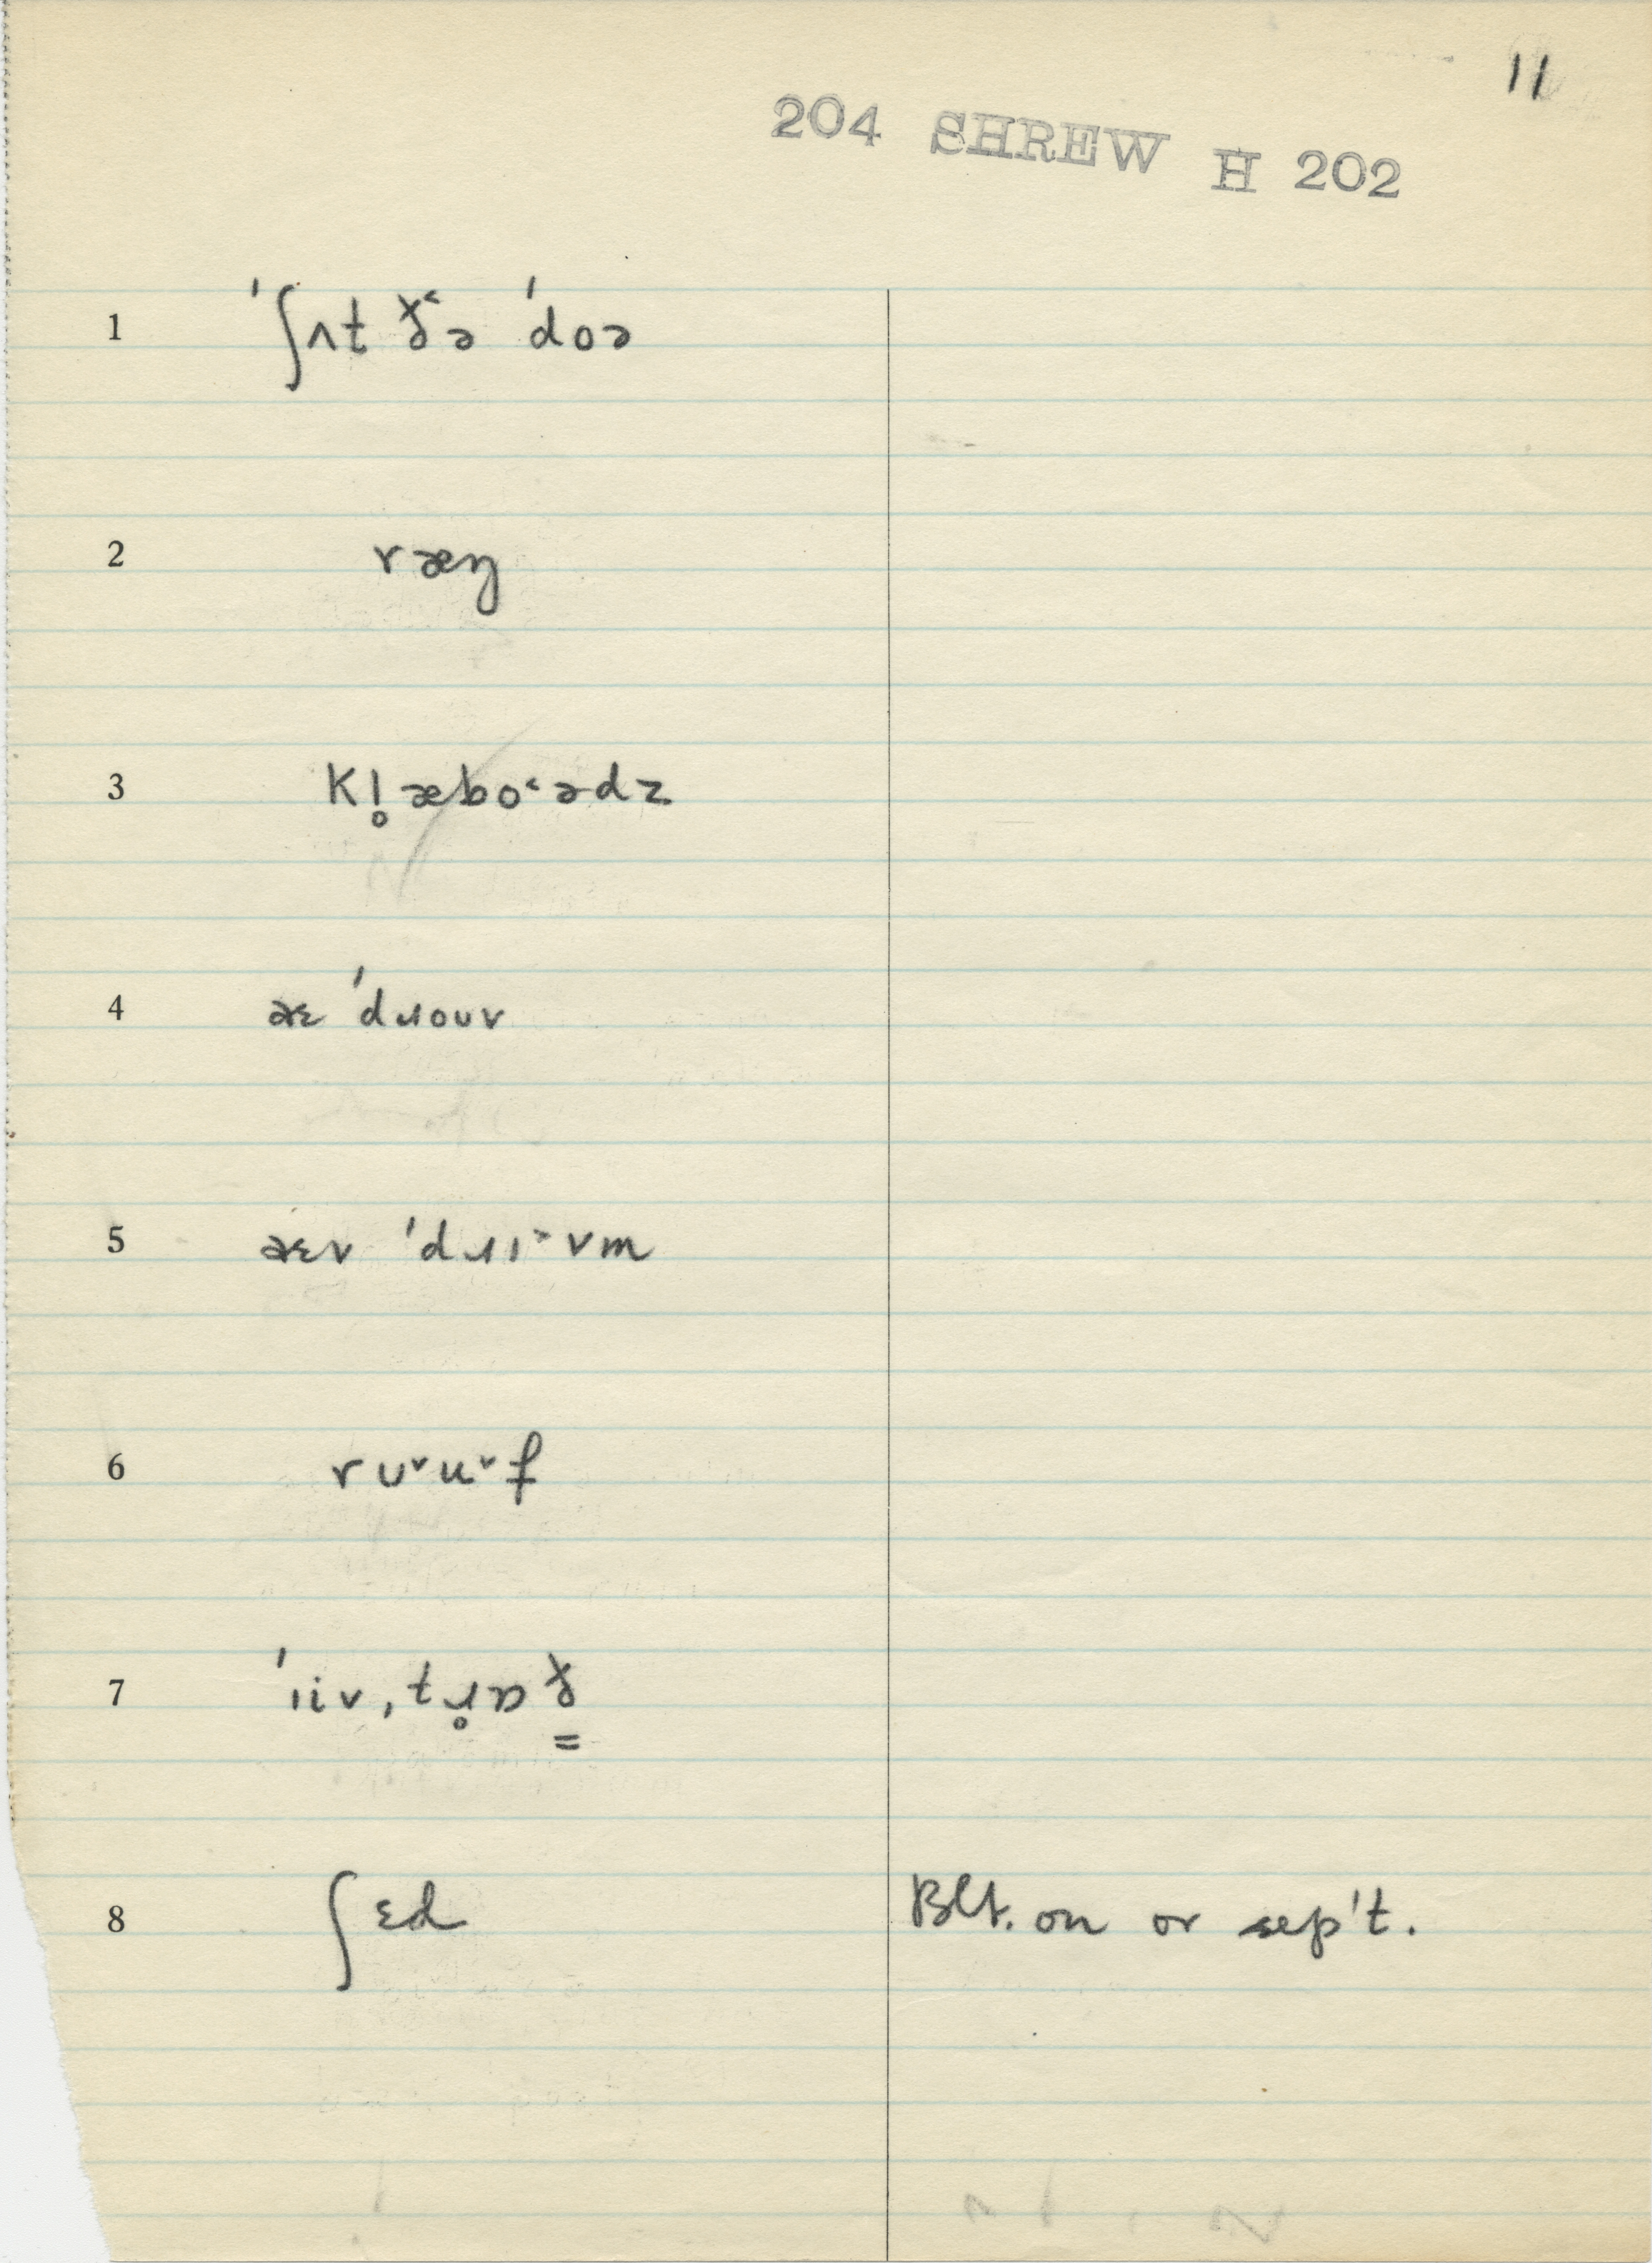 11
204 SHREW H 202
1 ˈʃʌt ðə ˈdoə
2 ræŋ
3 kl̥æbo˂ədz
4 aɛ ˈdɹouv
5 aɛv ˈdɹɪ˃vm
6 rʊ˅u˅f
7 ˈɪiv,tɹ̥ɒð̳
8 ʃɛd Blt. on or sep't.